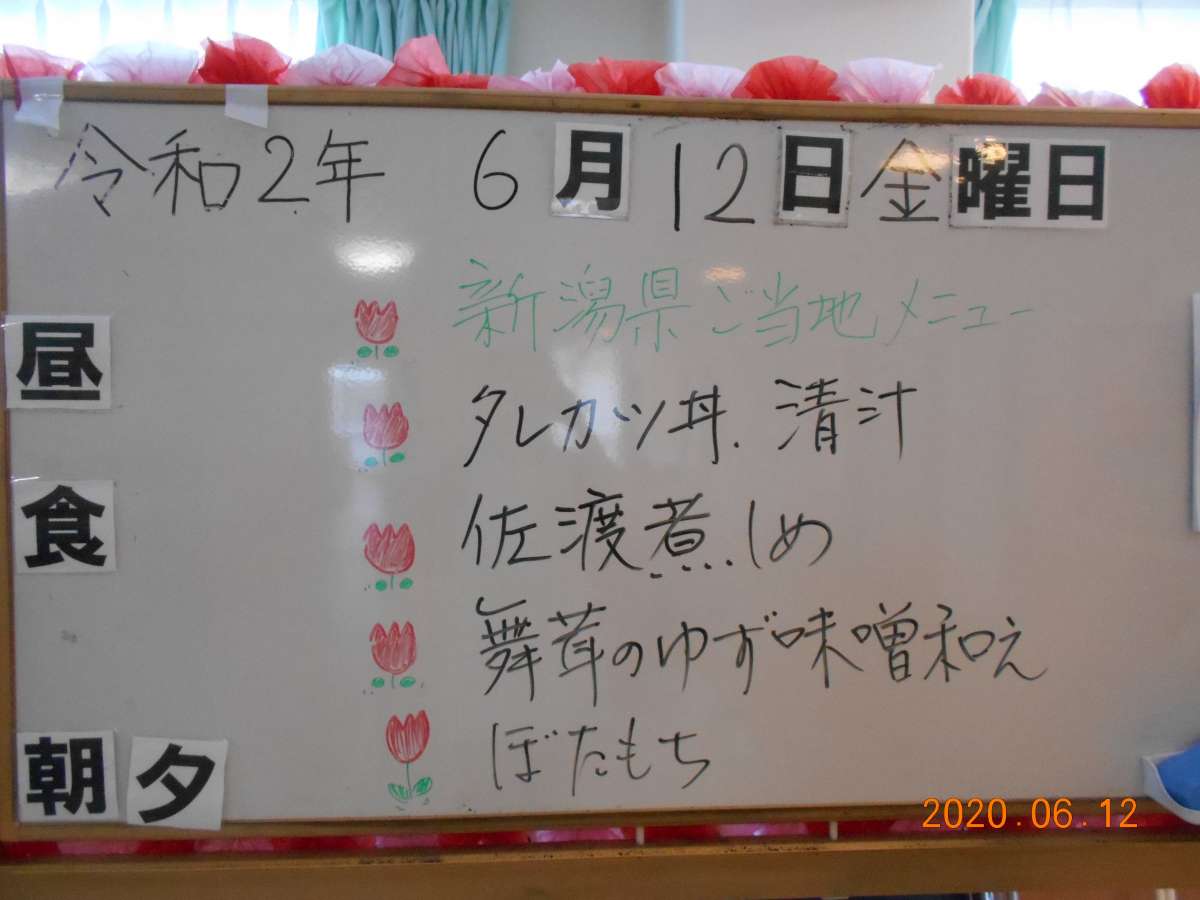 令和2年 6月12日金曜日
新潟県ご当地メニュー
昼
タレカツ丼、清汁
食
佐渡煮しめ
舞茸のゆず味噌和え
朝 夕
ぼたもち
2020.06.12